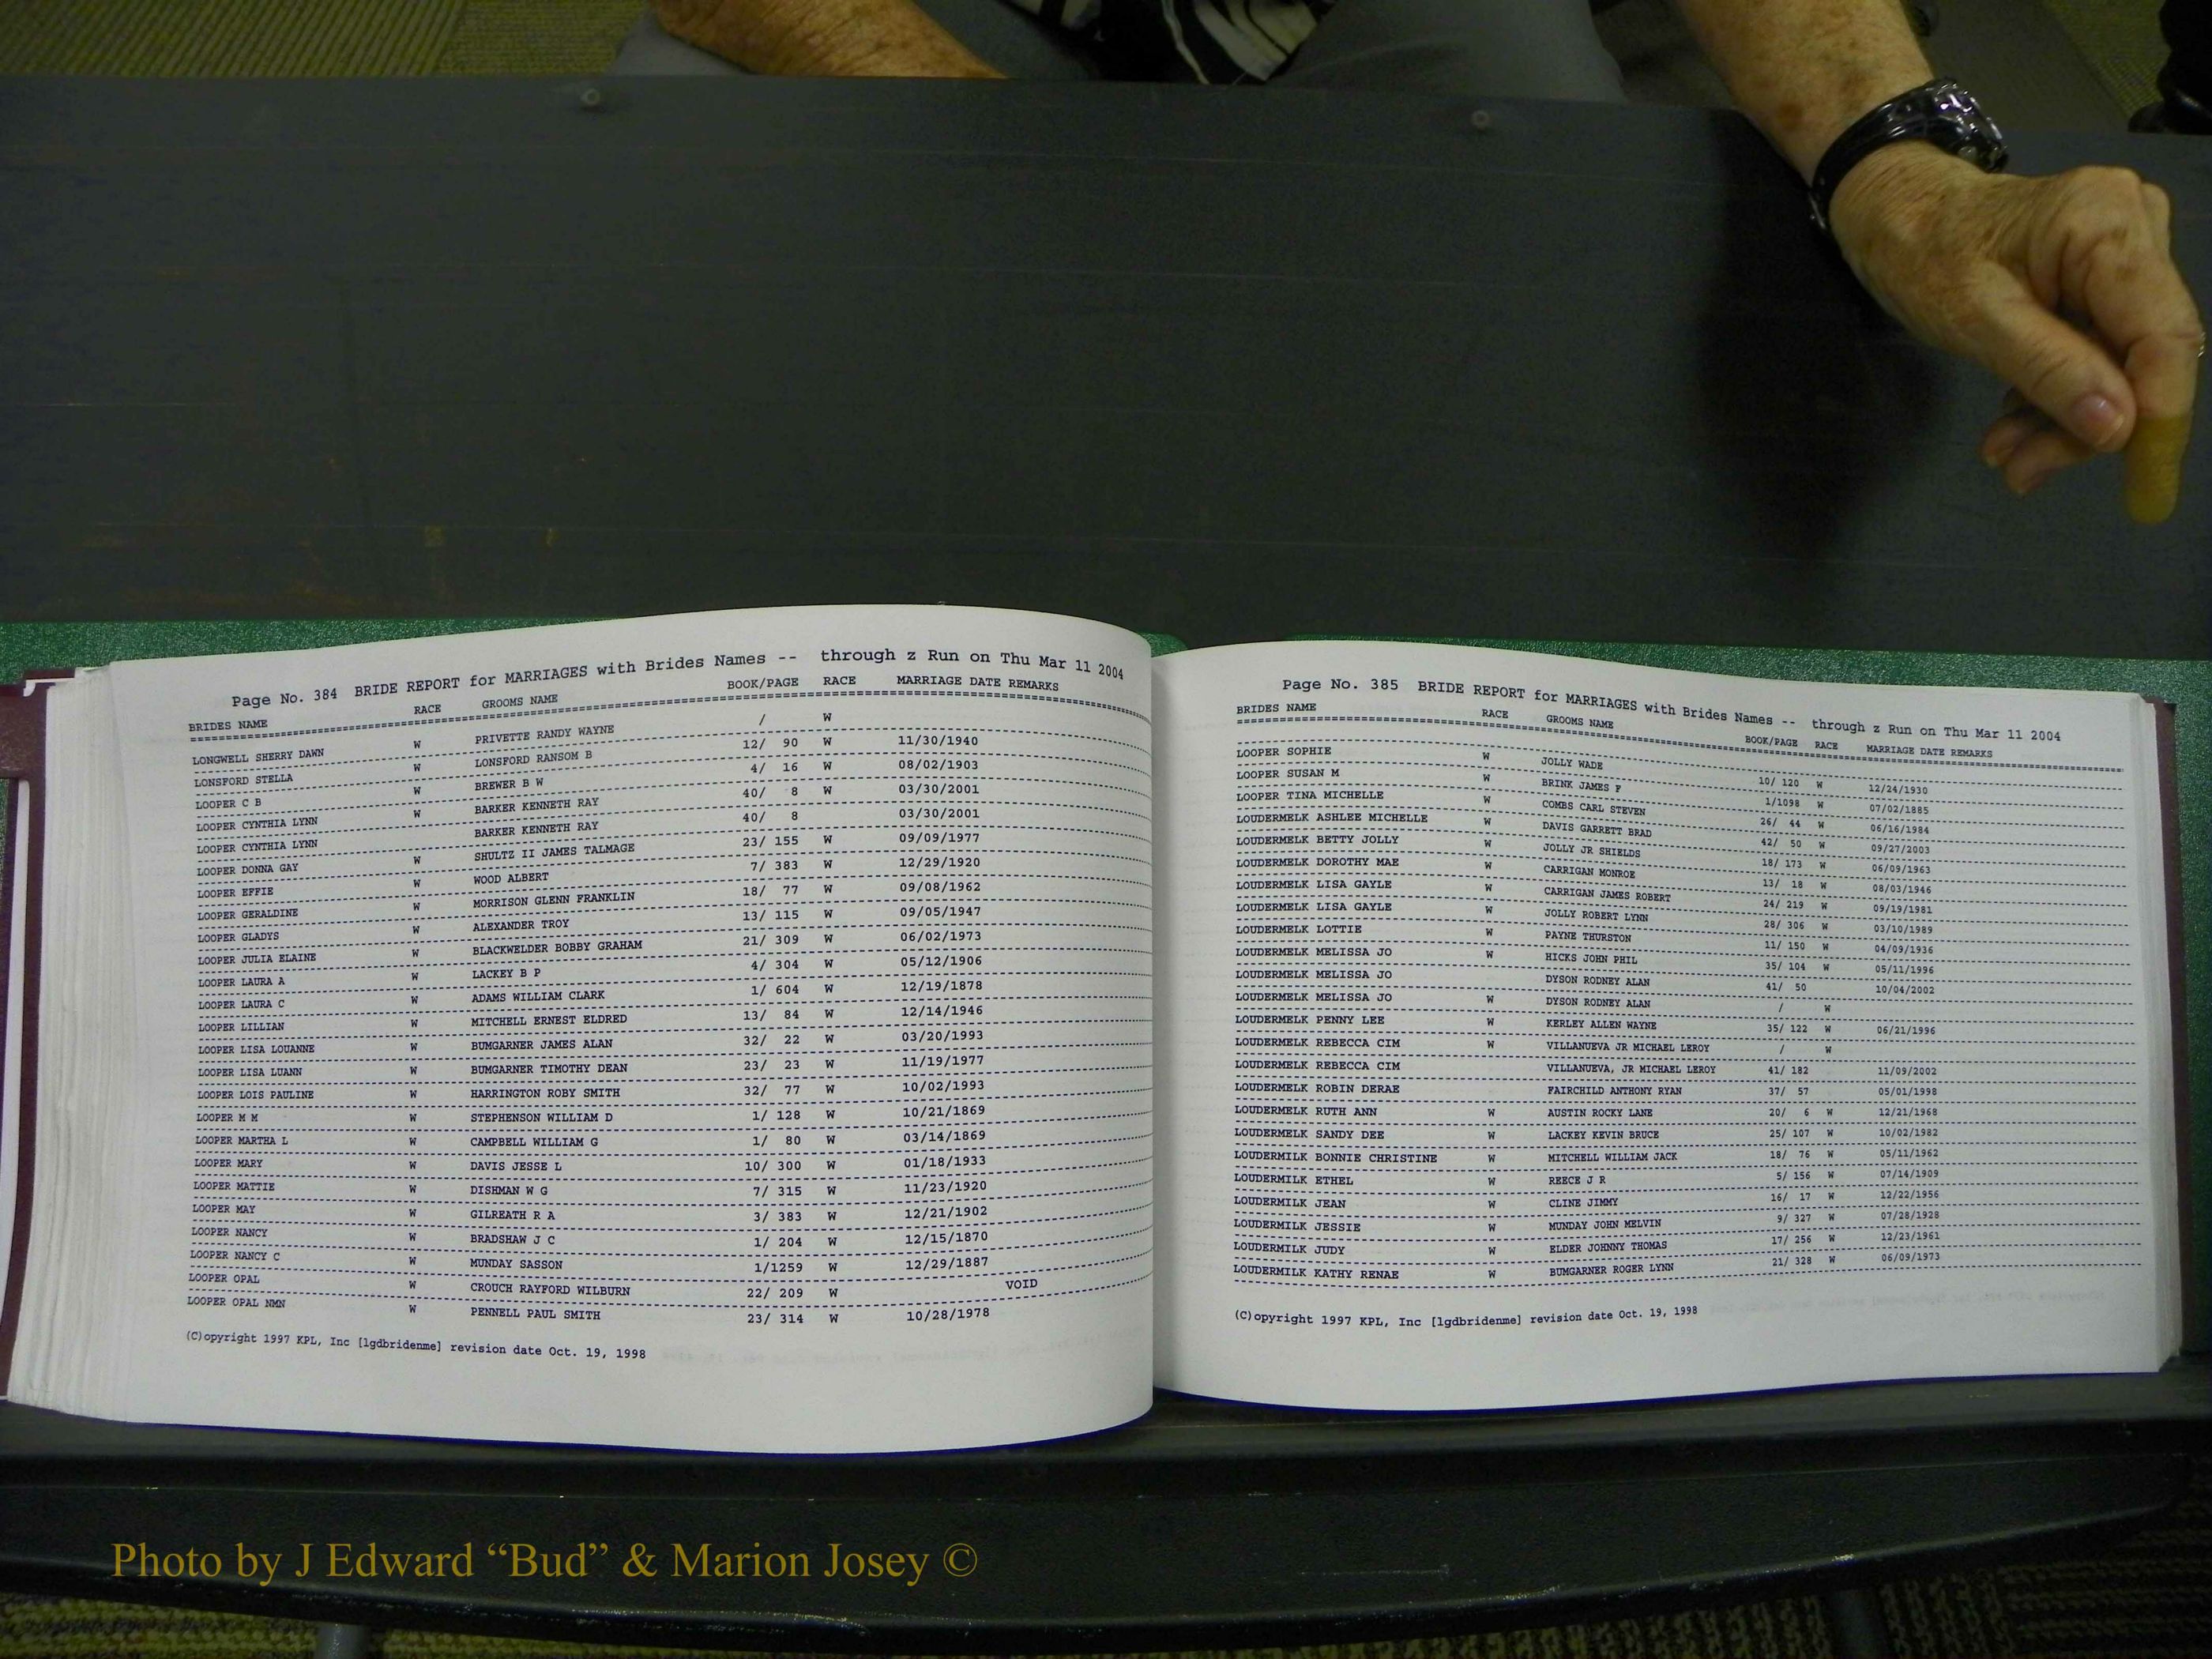 Page No. 384 BRIDE REPORT for MARRIAGES with Brides Names -- through z Run on Thu Mar 11 2004
BRIDES NAME RACE GROOMS NAME BOOK/PAGE RACE MARRIAGE DATE REMARKS
LONGWELL SHERRY DAWN W PRIVETTE RANDY WAYNE / W
LONSFORD STELLA W LONSFORD RANSOM B 12/ 90 W 11/30/1940
LOOPER C B W BREWER B W 4/ 16 W 08/02/1903
LOOPER CYNTHIA LYNN W BARKER KENNETH RAY 40/ 8 W 03/30/2001
LOOPER CYNTHIA LYNN BARKER KENNETH RAY 40/ 8 03/30/2001
LOOPER DONNA GAY W SHULTZ II JAMES TALMAGE 23/ 155 W 09/09/1977
LOOPER EFFIE W WOOD ALBERT 7/ 383 W 12/29/1920
LOOPER GERALDINE W MORRISON GLENN FRANKLIN 18/ 77 W 09/08/1962
LOOPER GLADYS W ALEXANDER TROY 13/ 115 W 09/05/1947
LOOPER JULIA ELAINE W BLACKWELDER BOBBY GRAHAM 21/ 309 W 06/02/1973
LOOPER LAURA A W LACKEY B P 4/ 304 W 05/12/1906
LOOPER LAURA C W ADAMS WILLIAM CLARK 1/ 604 W 12/19/1878
LOOPER LILLIAN W MITCHELL ERNEST ELDRED 13/ 84 W 12/14/1946
LOOPER LISA LOUANNE W BUMGARNER JAMES ALAN 32/ 22 W 03/20/1993
LOOPER LISA LUANN W BUMGARNER TIMOTHY DEAN 23/ 23 W 11/19/1977
LOOPER LOIS PAULINE W HARRINGTON ROBY SMITH 32/ 77 W 10/02/1993
LOOPER M M W STEPHENSON WILLIAM D 1/ 128 W 10/21/1869
LOOPER MARTHA L W CAMPBELL WILLIAM G 1/ 80 W 03/14/1869
LOOPER MARY W DAVIS JESSE L 10/ 300 W 01/18/1933
LOOPER MATTIE W DISHMAN W G 7/ 315 W 11/23/1920
LOOPER MAY W GILREATH R A 3/ 383 W 12/21/1902
LOOPER NANCY W BRADSHAW J C 1/ 204 W 12/15/1870
LOOPER NANCY C W MUNDAY SASSON 1/1259 W 12/29/1887
LOOPER OPAL W CROUCH RAYFORD WILBURN 22/ 209 W VOID
LOOPER OPAL NMN W PENNELL PAUL SMITH 23/ 314 W 10/28/1978
(C)opyright 1997 KPL, Inc [lgdbridenme] revision date Oct. 19, 1998
Page No. 385 BRIDE REPORT for MARRIAGES with Brides Names -- through z Run on Thu Mar 11 2004
BRIDES NAME RACE GROOMS NAME BOOK/PAGE RACE MARRIAGE DATE REMARKS
LOOPER SOPHIE W JOLLY WADE 10/ 120 W 12/24/1930
LOOPER SUSAN M W BRINK JAMES F 1/1098 W 07/02/1885
LOOPER TINA MICHELLE W COMBS CARL STEVEN 26/ 44 W 06/16/1984
LOUDERMELK ASHLEE MICHELLE W DAVIS GARRETT BRAD 42/ 50 W 09/27/2003
LOUDERMELK BETTY JOLLY W JOLLY JR SHIELDS 18/ 173 W 06/09/1963
LOUDERMELK DOROTHY MAE W CARRIGAN MONROE 13/ 18 W 08/03/1946
LOUDERMELK LISA GAYLE W CARRIGAN JAMES ROBERT 24/ 219 W 09/19/1981
LOUDERMELK LISA GAYLE W JOLLY ROBERT LYNN 28/ 306 W 03/10/1989
LOUDERMELK LOTTIE W PAYNE THURSTON 11/ 150 W 04/09/1936
LOUDERMELK MELISSA JO W HICKS JOHN PHIL 35/ 104 W 05/11/1996
LOUDERMELK MELISSA JO DYSON RODNEY ALAN 41/ 50 10/04/2002
LOUDERMELK MELISSA JO W DYSON RODNEY ALAN / W
LOUDERMELK PENNY LEE W KERLEY ALLEN WAYNE 35/ 122 W 06/21/1996
LOUDERMELK REBECCA CIM W VILLANUEVA JR MICHAEL LEROY / W
LOUDERMELK REBECCA CIM VILLANUEVA, JR MICHAEL LEROY 41/ 182 11/09/2002
LOUDERMELK ROBIN DERAE FAIRCHILD ANTHONY RYAN 37/ 57 05/01/1998
LOUDERMELK RUTH ANN W AUSTIN ROCKY LANE 20/ 6 W 12/21/1968
LOUDERMELK SANDY DEE W LACKEY KEVIN BRUCE 25/ 107 W 10/02/1982
LOUDERMILK BONNIE CHRISTINE W MITCHELL WILLIAM JACK 18/ 76 W 05/11/1962
LOUDERMILK ETHEL W REECE J R 5/ 156 W 07/14/1909
LOUDERMILK JEAN W CLINE JIMMY 16/ 17 W 12/22/1956
LOUDERMILK JESSIE W MUNDAY JOHN MELVIN 9/ 327 W 07/28/1928
LOUDERMILK JUDY W ELDER JOHNNY THOMAS 17/ 256 W 12/23/1961
LOUDERMILK KATHY RENAE W BUMGARNER ROGER LYNN 21/ 328 W 06/09/1973
(C)opyright 1997 KPL, Inc [lgdbridenme] revision date Oct. 19, 1998
Photo by J Edward “Bud” & Marion Josey ©